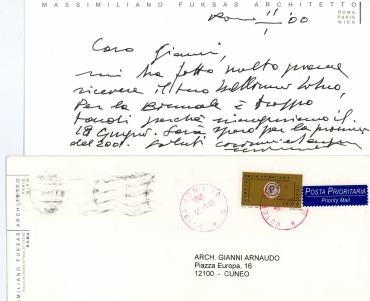 MASSIMILIANO FUKSAS ARCHITETTO
ROMA
PARIS
WIEN
Roma '00
Caro Gianni,
mi ha fatto molto piacere
ricevere il tuo bellissimo
Per la Biennale è troppo
tardi perché inauguriamo il
18 Giugno. Sarà spero per la prossima
del 2001. Saluti
MASSIMILIANO FUKSAS ARCHITETTO
ROMA
POSTA PRIORITARIA
Priority Mail
ARCH. GIANNI ARNAUDO
Piazza Europa, 16
12100 - CUNEO